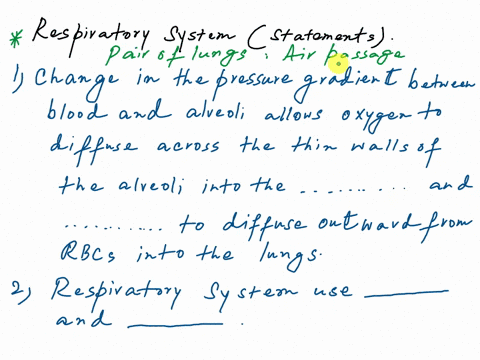 * Respiratory System (Statements).
Pair of lungs : Air passage
1) Change in the pressure gradient between
blood and alveoli allows oxygen to
diffuse across the thin walls of
the alveoli into the ........... and
........... to diffuse outward from
RBCs into the lungs.
2) Respiratory System use ________
and ________ .